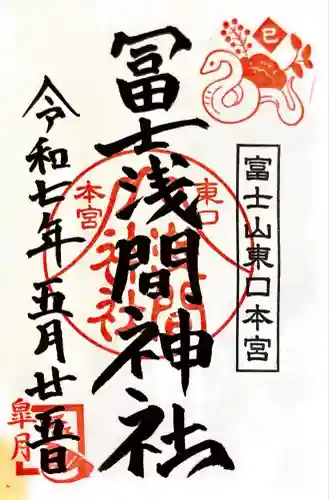 巳
富士山東口本宮
冨士浅間神社
東口
本宮
浅間
神社
令和七年五月廿五日
皐月